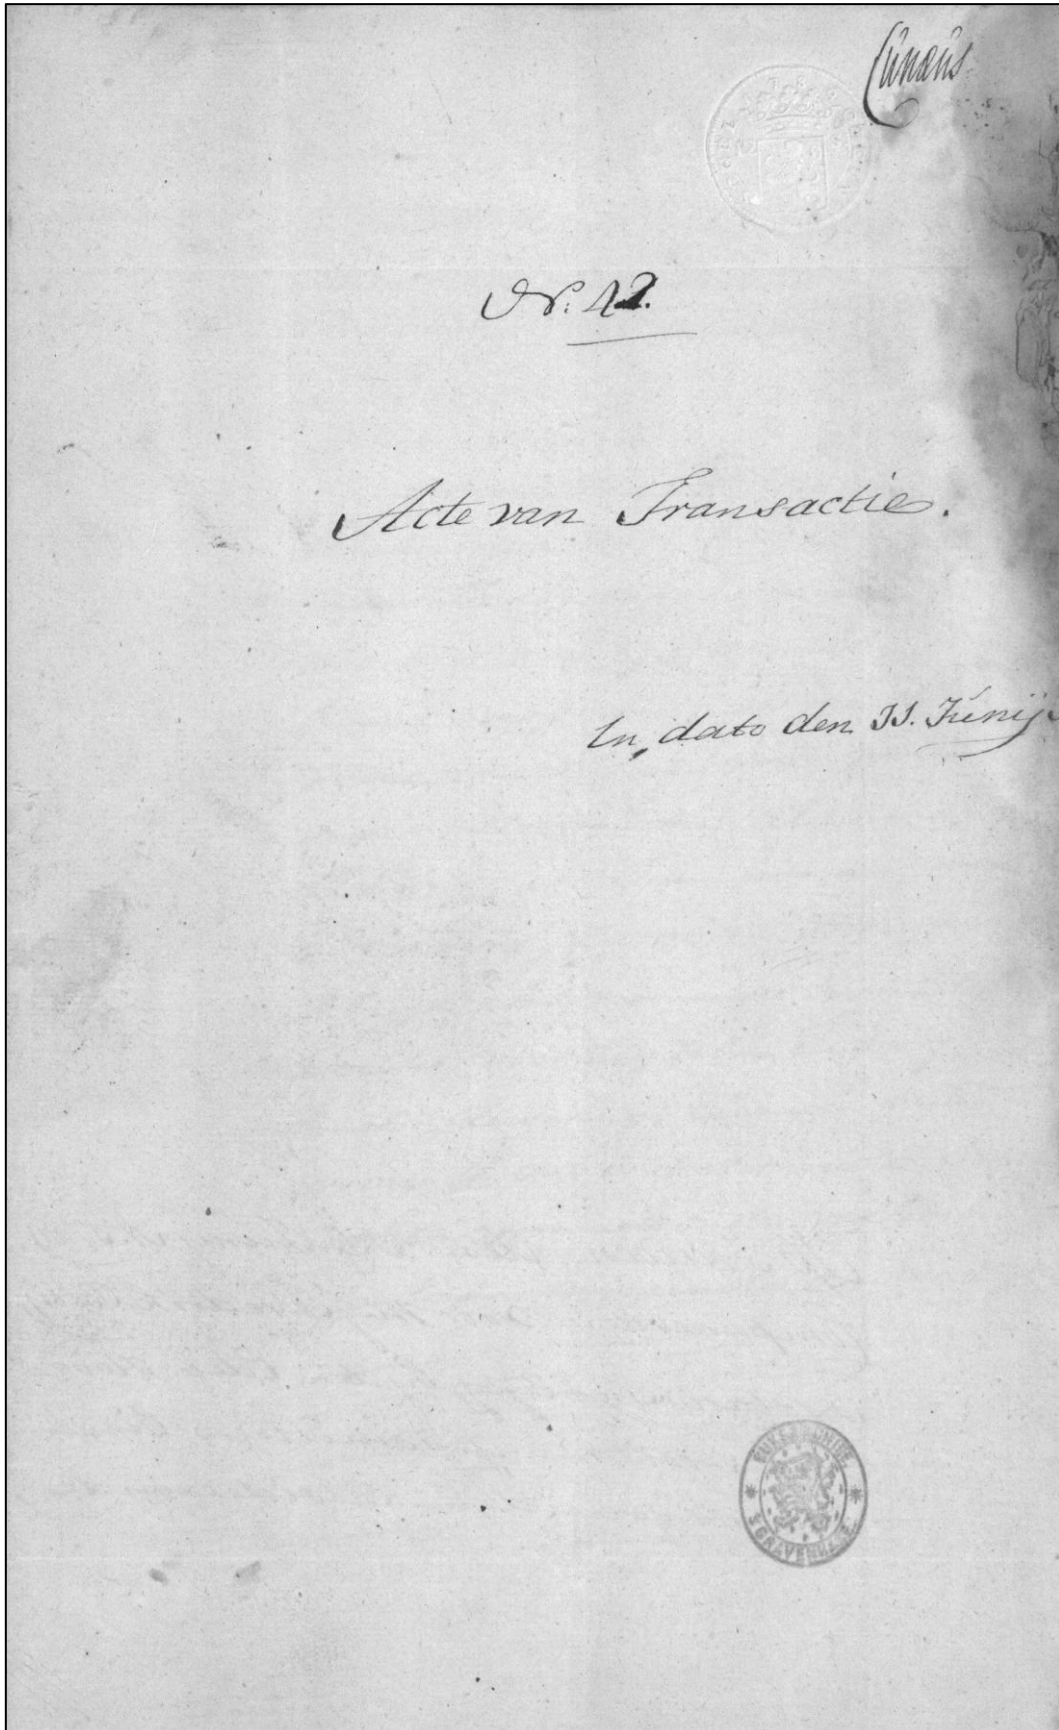 Cunæus
Nr: 42.
Acte van Transactie.
In dato den 11. Junij
RIJKSARCHIEF
S GRAVENHAGE